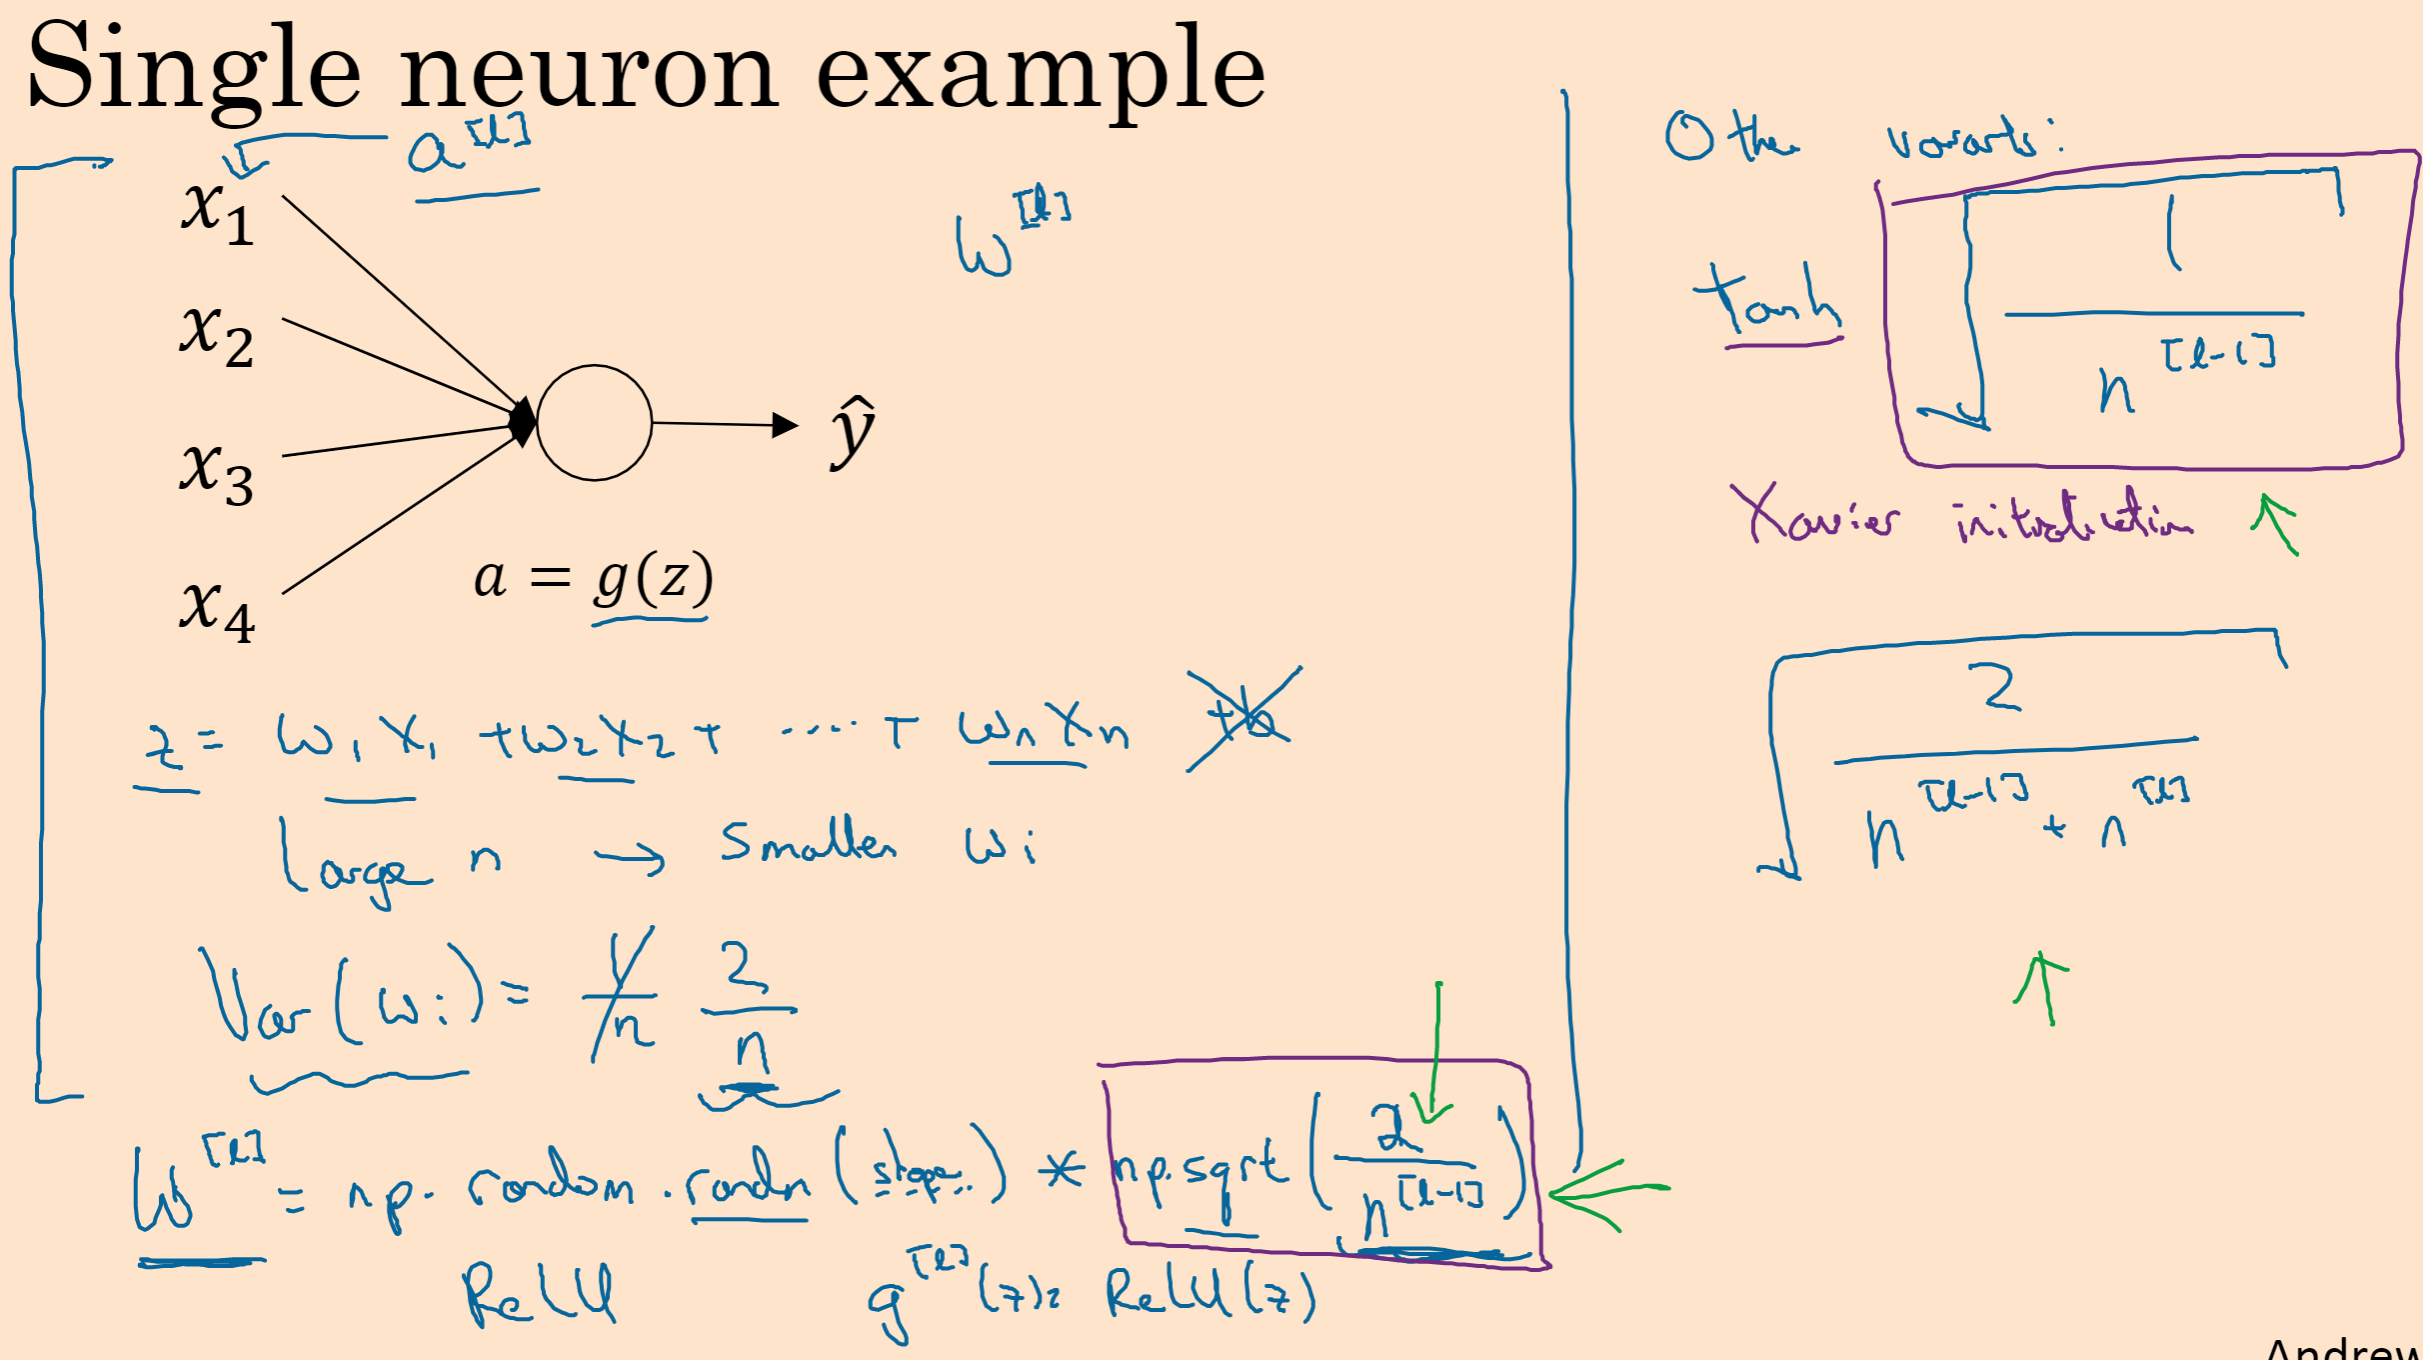 Single neuron example
a^[l]
x₁
x₂
x₃
x₄
W^[l]
ŷ
a = g(z)
z = w₁x₁ + w₂x₂ + ···· + wₙxₙ +b
Large n → Smaller wᵢ
Var(wᵢ) = 1/n 2/n
W^[l] = np.random.randn(shape) * np.sqrt(2/n^[l-1])
ReLU g^[l](z) = ReLU(z)
Other variants:
tanh √(1/n^[l-1])
Xavier initialization
√(2/(n^[l-1] + n^[l]))
Andrew